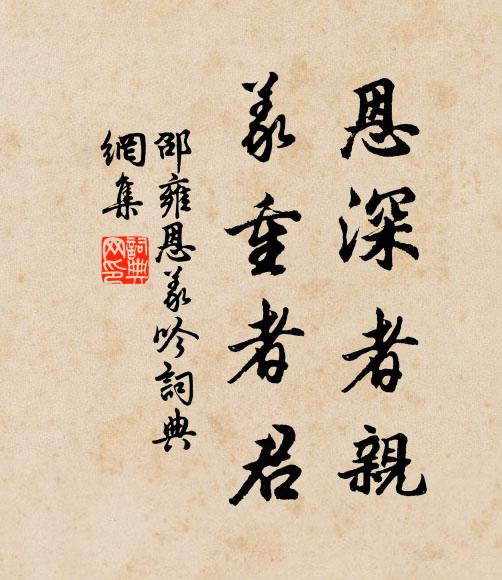 恩深者親
義重者君
邵雍恩義吟詞典
網集
詞典網印